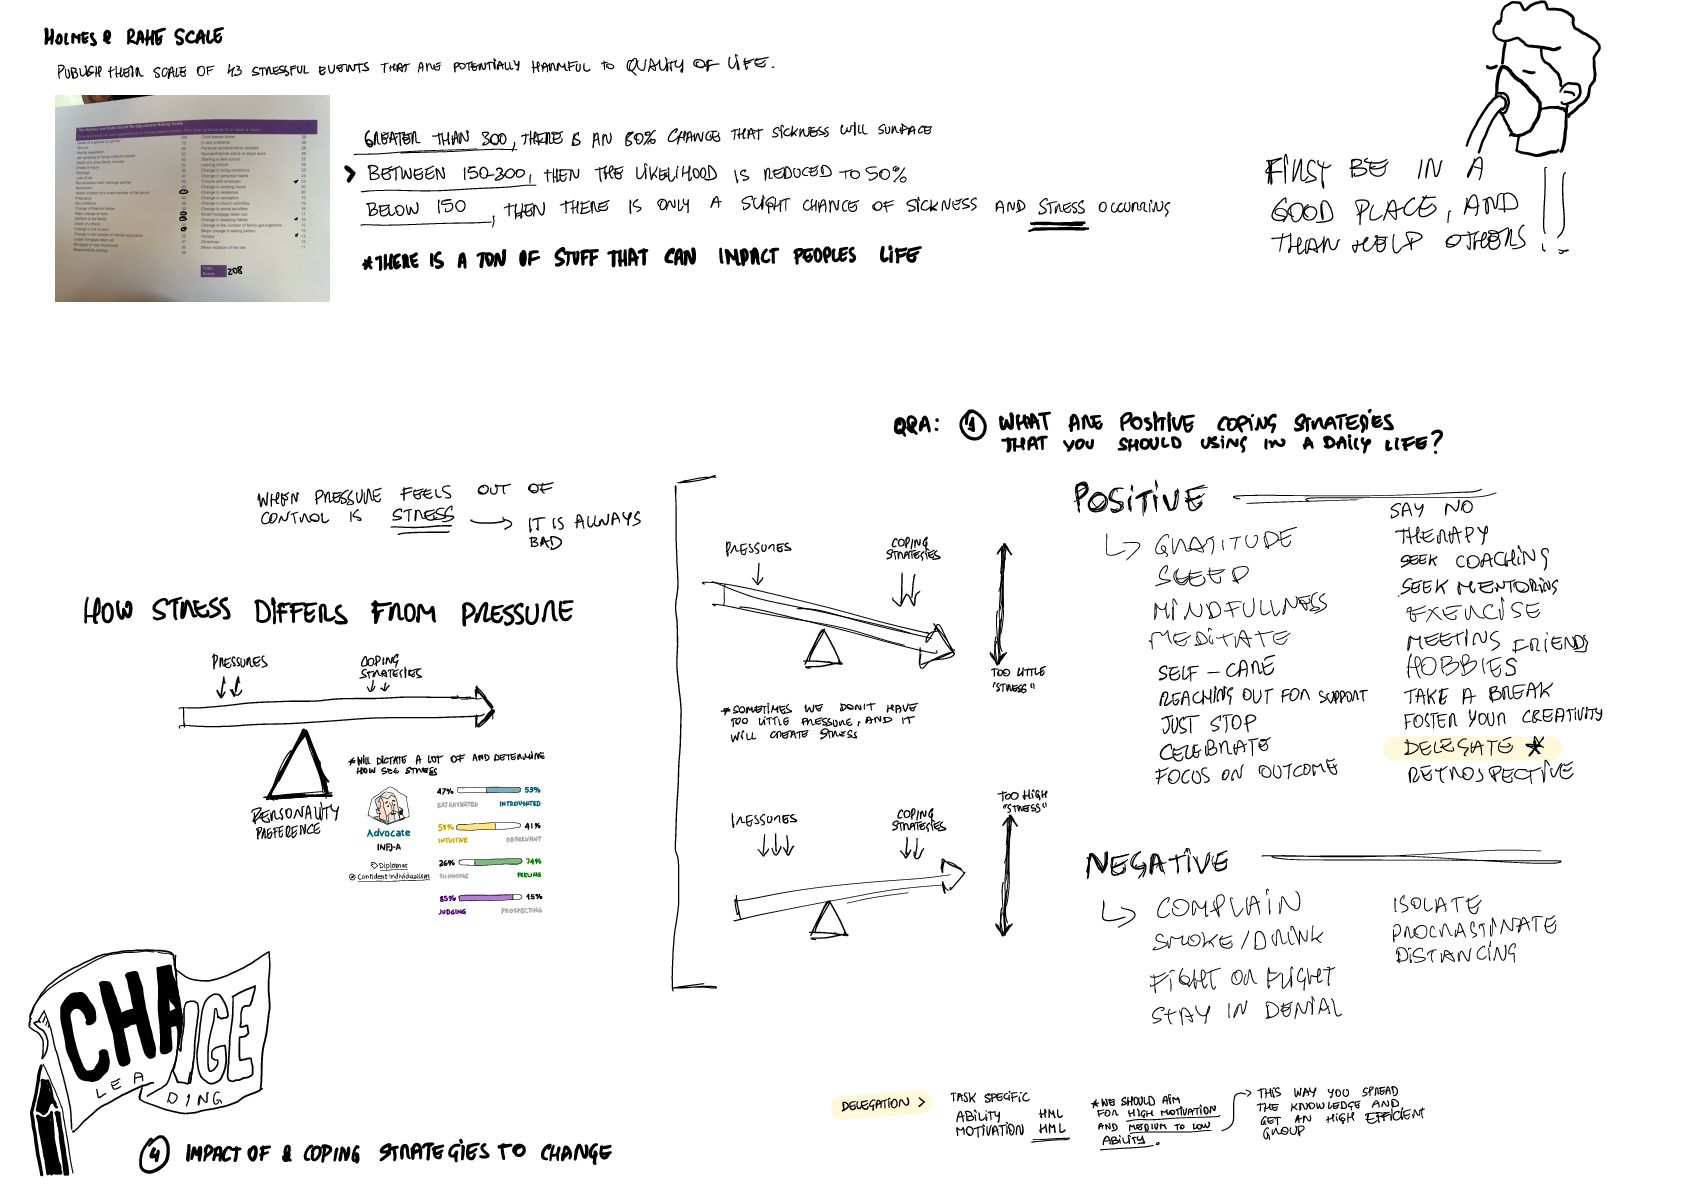 HOLMES & RAHE SCALE
PUBLISH THEIR SCALE OF 43 STRESSFUL EVENTS THAT ARE POTENTIALLY HARMFUL TO QUALITY OF LIFE.
GREATER THAN 300, THERE IS AN 80% CHANGE THAT SICKNESS WILL SURFACE
BETWEEN 150-300, THEN THE LIKELIHOOD IS REDUCED TO 50%
BELOW 150, THEN THERE IS ONLY A SLIGHT CHANCE OF SICKNESS AND STRESS OCCURRING
*THERE IS A TON OF STUFF THAT CAN IMPACT PEOPLES LIFE
Total
Score 208
FIRST BE IN A
GOOD PLACE, AND
THAN HELP OTHERS !!
WHEN PRESSURE FEELS OUT OF
CONTROL IS STRESS → IT IS ALLWAYS
BAD
HOW STRESS DIFFERS FROM PRESSURE
PRESSURES
COPING
STRATEGIES
PERSONALITY
PREFERENCE
*WILL DICTATE A LOT OF AND DETERMINE
HOW SEE STRESS
Advocate
INFJ-A
Diplomat
Confident Individualism
47% 53%
EXTRAVERTED INTROVERTED
59% 41%
INTUITIVE OBSERVANT
26% 74%
THINKING FEELING
85% 15%
JUDGING PROSPECTING
PRESSURES
COPING
STRATEGIES
TOO LITTLE
"STRESS"
*SOMETIMES WE DON'T HAVE
TOO LITTLE PRESSURE, AND IT
WILL CREATE STRESS
PRESSURES
COPING
STRATEGIES
TOO HIGH
"STRESS"
Q&A: 1 WHAT ARE POSITIVE COPING STRATEGIES
THAT YOU SHOULD USING IN A DAILY LIFE?
POSITIVE
GRATITUDE
SLEEP
MINDFULLNESS
MEDITATE
SELF-CARE
REACHING OUT FOR SUPPORT
JUST STOP
CELEBRATE
FOCUS ON OUTCOME
SAY NO
THERAPY
SEEK COACHING
SEEK MENTORING
EXERCISE
MEETING FRIENDS
HOBBIES
TAKE A BREAK
FOSTER YOUR CREATIVITY
DELEGATE *
RETROSPECTIVE
NEGATIVE
COMPLAIN
SMOKE/DRINK
FIGHT OR FLIGHT
STAY IN DENIAL
ISOLATE
PROCRASTINATE
DISTANCING
CHANGE
LEADING
4 IMPACT OF & COPING STRATEGIES TO CHANGE
DELEGATION >
TASK SPECIFIC
ABILITY HML
MOTIVATION HML
*WE SHOULD AIM
FOR HIGH MOTIVATION
AND MEDIUM TO LOW
ABILITY.
THIS WAY YOU SPREAD
THE KNOWLEDGE AND
GET AN HIGH EFFICIENT
GROUP